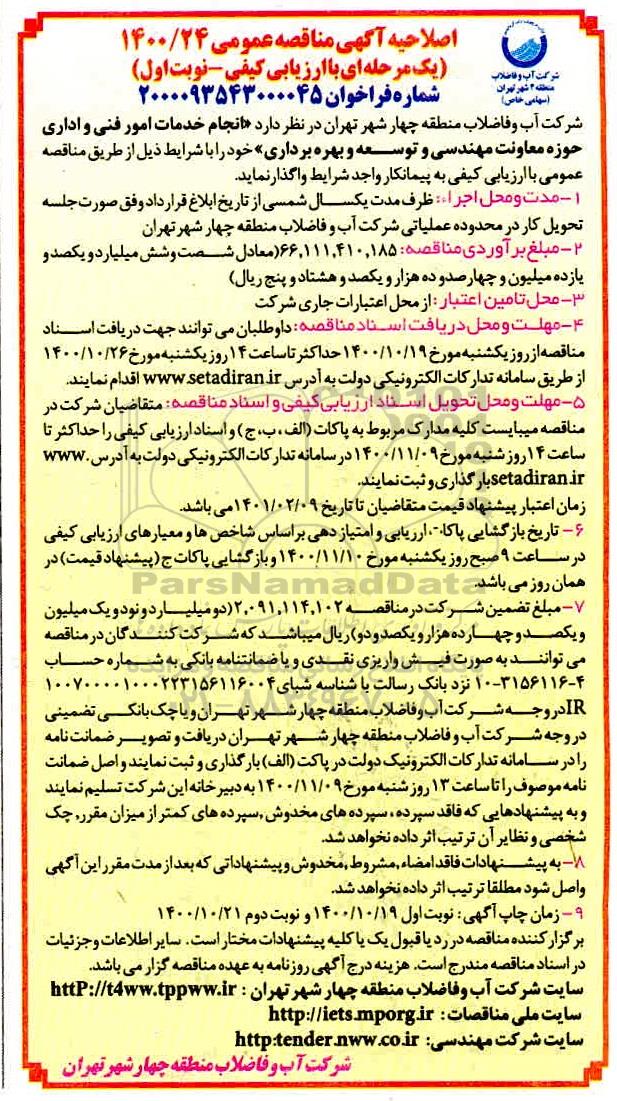 اصلاحیه آگهی مناقصه عمومی ۱۴۰۰/۲۴
(یک مرحله‌ای با ارزیابی کیفی - نوبت اول)
شماره فراخوان ۲۰۰۰۰۹۳۵۴۳۰۰۰۰۴۵
شرکت آب و فاضلاب
منطقه ۴ شهر تهران
(سهامی خاص)
شرکت آب و فاضلاب منطقه چهار شهر تهران در نظر دارد «انجام خدمات امور فنی و اداری
حوزه معاونت مهندسی و توسعه و بهره برداری» خود را با شرایط ذیل از طریق مناقصه
عمومی با ارزیابی کیفی به پیمانکار واجد شرایط واگذار نماید.
۱- مدت و محل اجراء: ظرف مدت یکسال شمسی از تاریخ ابلاغ قرارداد وفق صورت جلسه
تحویل کار در محدوده عملیاتی شرکت آب و فاضلاب منطقه چهار شهر تهران
۲- مبلغ برآوردی مناقصه: ۶۶,۱۱۱,۴۱۰,۱۸۵ (معادل شصت و شش میلیارد و یکصد و
یازده میلیون و چهارصد و ده هزار و یکصد و هشتاد و پنج ریال)
۳- محل تامین اعتبار: از محل اعتبارات جاری شرکت
۴- مهلت و محل دریافت اسناد مناقصه: داوطلبان می توانند جهت دریافت اسناد
مناقصه از روز یکشنبه مورخ ۱۴۰۰/۱۰/۱۹ حداکثر تا ساعت ۱۴ روز یکشنبه مورخ ۱۴۰۰/۱۰/۲۶
از طریق سامانه تدارکات الکترونیکی دولت به آدرس www.setadiran.ir اقدام نمایند.
۵- مهلت و محل تحویل اسناد ارزیابی کیفی و اسناد مناقصه: متقاضیان شرکت در
مناقصه میبایست کلیه مدارک مربوط به پاکات (الف، ب، ج) و اسناد ارزیابی کیفی را حداکثر تا
ساعت ۱۴ روز شنبه مورخ ۱۴۰۰/۱۱/۰۹ در سامانه تدارکات الکترونیکی دولت به آدرس www.
setadiran.ir بارگذاری و ثبت نمایند.
زمان اعتبار پیشنهاد قیمت متقاضیان تا تاریخ ۱۴۰۱/۰۲/۰۹ می باشد.
۶- تاریخ بازگشایی پاکات، ارزیابی و امتیازدهی براساس شاخص ها و معیارهای ارزیابی کیفی
در ساعت ۹ صبح روز یکشنبه مورخ ۱۴۰۰/۱۱/۱۰ و بازگشایی پاکات ج (پیشنهاد قیمت) در
همان روز می باشد.
۷- مبلغ تضمین شرکت در مناقصه ۲,۰۹۱,۱۱۴,۱۰۲ (دو میلیارد و نود و یک میلیون
و یکصد و چهارده هزار و یکصد و دو) ریال میباشد که شرکت کنندگان در مناقصه
می توانند به صورت فیش واریزی نقدی و یا ضمانتنامه بانکی به شماره حساب
۱۰-۳۱۵۶۱۱۶-۴ نزد بانک رسالت با شناسه شبای ۱۰۰۷۰۰۰۰۱۰۰۰۲۲۳۱۵۶۱۱۶۰۰۴
IR در وجه شرکت آب و فاضلاب منطقه چهار شهر تهران و یا چک بانکی تضمینی
در وجه شرکت آب و فاضلاب منطقه چهار شهر تهران دریافت و تصویر ضمانت نامه
را در سامانه تدارکات الکترونیک دولت در پاکت (الف) بارگذاری و ثبت نمایند و اصل ضمانت
نامه موصوف را تا ساعت ۱۳ روز شنبه مورخ ۱۴۰۰/۱۱/۰۹ به دبیرخانه این شرکت تسلیم نمایند
و به پیشنهادهایی که فاقد سپرده، سپرده های مخدوش, سپرده های کمتر از میزان مقرر, چک
شخصی و نظایر آن ترتیب اثر داده نخواهد شد.
۸- به پیشنهادات فاقد امضاء, مشروط, مخدوش و پیشنهاداتی که بعد از مدت مقرر این آگهی
واصل شود مطلقا ترتیب اثر داده نخواهد شد.
۹- زمان چاپ آگهی: نوبت اول ۱۴۰۰/۱۰/۱۹ و نوبت دوم ۱۴۰۰/۱۰/۲۱
برگزارکننده مناقصه در رد یا قبول یک یا کلیه پیشنهادات مختار است. سایر اطلاعات و جزئیات
در اسناد مناقصه مندرج است. هزینه درج آگهی روزنامه به عهده مناقصه گزار می باشد.
سایت شرکت آب و فاضلاب منطقه چهار شهر تهران: httP://t4ww.tppww.ir
سایت ملی مناقصات: http://iets.mporg.ir
سایت شرکت مهندسی: http:tender.nww.co.ir
شرکت آب و فاضلاب منطقه چهار شهر تهران
ParsNamadData